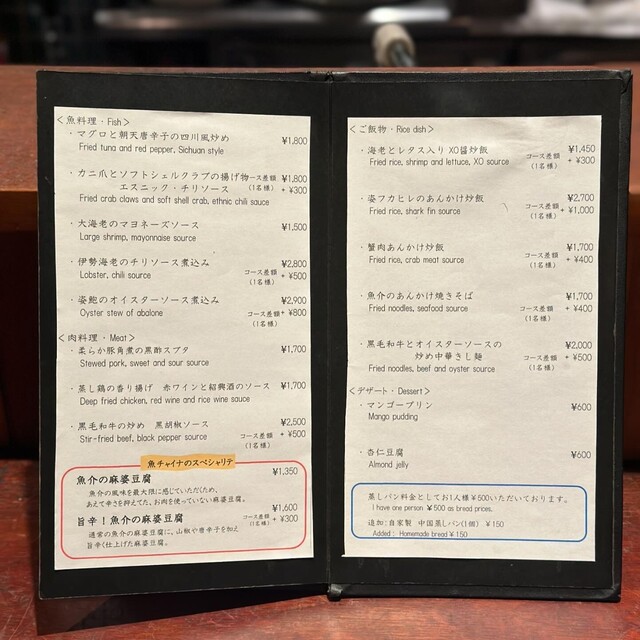 ＜魚料理・Fish＞
・マグロと朝天唐辛子の四川風炒め ¥1,800
Fried tuna and red pepper, Sichuan style
・カニ爪とソフトシェルクラブの揚げ物 ¥1,800
エスニック・チリソース コース差額(1名様) + ¥300
Fried crab claws and soft shell crab, ethnic chili sauce
・大海老のマヨネーズソース ¥1,500
Large shrimp, mayonnaise source
・伊勢海老のチリソース煮込み ¥2,800
Lobster, chili source コース差額(1名様) + ¥500
・姿鮑のオイスターソース煮込み ¥2,900
Oyster stew of abalone コース差額(1名様) + ¥800
＜肉料理・Meat＞
・柔らか豚角煮の黒酢スブタ ¥1,700
Stewed pork, sweet and sour source
・蒸し鶏の香り揚げ 赤ワインと紹興酒のソース ¥1,700
Deep fried chicken, red wine and rice wine sauce
・黒毛和牛の炒め 黒胡椒ソース ¥2,500
Stir-fried beef, black pepper source コース差額(1名様) + ¥500
魚チャイナのスペシャリテ
魚介の麻婆豆腐 ¥1,350
魚介の風味を最大限に感じていただくため、
あえて辛さを抑えてた、お肉を使っていない麻婆豆腐。
旨辛！魚介の麻婆豆腐 ¥1,600
コース差額(1名様) + ¥300
通常の魚介の麻婆豆腐に、山椒や唐辛子を加え
旨辛く仕上げた麻婆豆腐。
＜ご飯物・Rice dish＞
・海老とレタス入り XO醤炒飯 ¥1,450
Fried rice, shrimp and lettuce, XO source コース差額(1名様) + ¥300
・姿フカヒレのあんかけ炒飯 ¥2,700
Fried rice, shark fin source コース差額(1名様) + ¥1,000
・蟹肉あんかけ炒飯 ¥1,700
Fried rice, crab meat source コース差額(1名様) + ¥400
・魚介のあんかけ焼きそば ¥1,700
Fried noodles, seafood source コース差額(1名様) + ¥400
・黒毛和牛とオイスターソースの ¥2,000
炒め中華きし麺 コース差額(1名様) + ¥500
Fried noodles, beef and oyster source
＜デザート・Dessert＞
・マンゴープリン ¥600
Mango pudding
・杏仁豆腐 ¥600
Almond jelly
蒸しパン料金としてお1人様¥500いただいております。
I have one person ¥500 as bread prices.
追加:自家製 中国蒸しパン(1個) ¥150
Added: Homemade bread ¥150